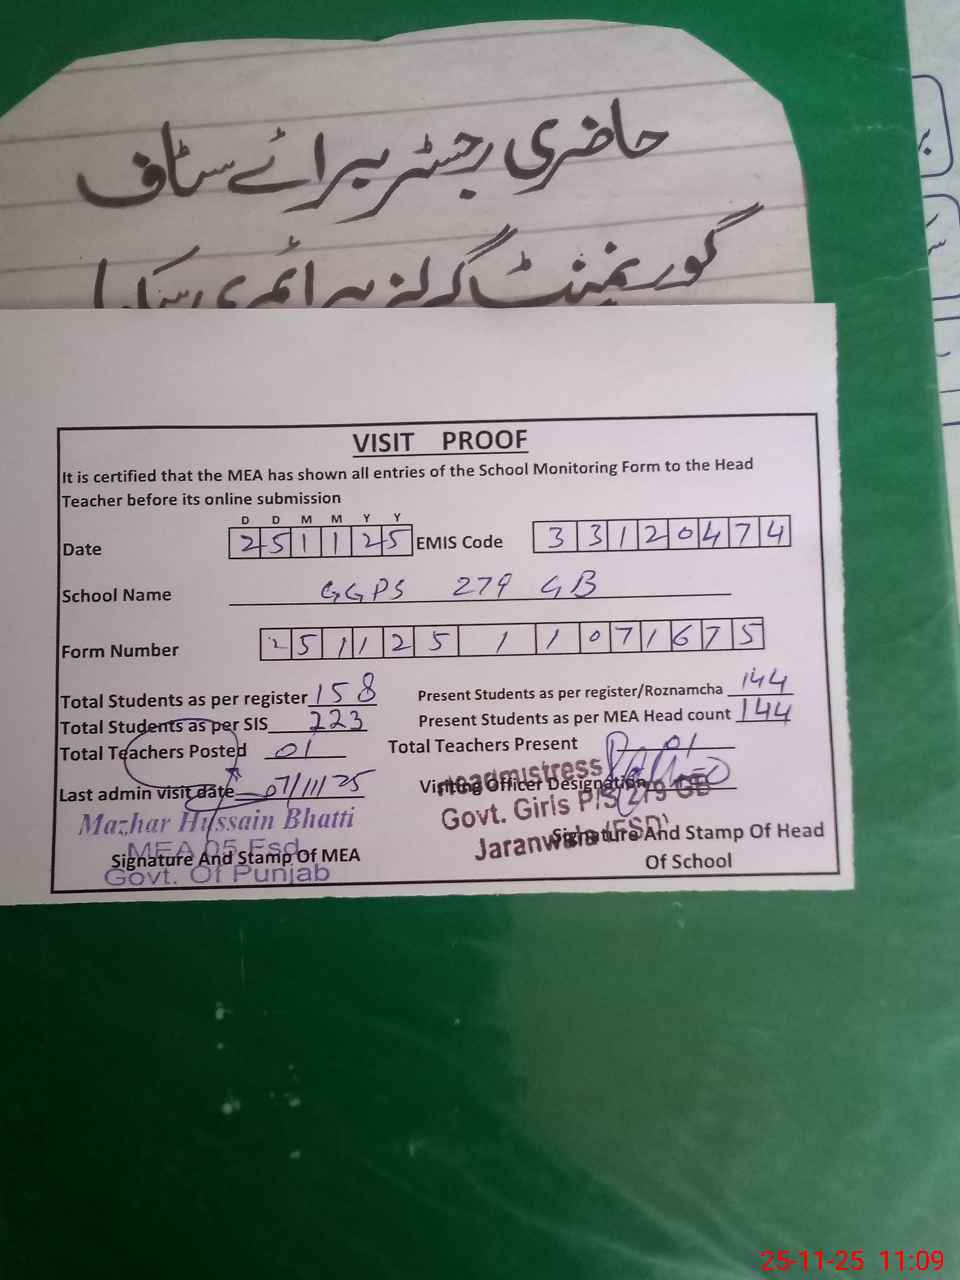 حاضری رجسٹر برائے سٹاف
گورنمنٹ گرلز پرائمری سکول
VISIT PROOF
It is certified that the MEA has shown all entries of the School Monitoring Form to the Head
Teacher before its online submission
D D M M Y Y
Date 251125 EMIS Code 33120474
School Name GGPS 279 GB
Form Number 251125 1 1071675
Total Students as per register 158 Present Students as per register/Roznamcha 144
Total Students as per SIS 223 Present Students as per MEA Head count 144
Total Teachers Posted 01 Total Teachers Present 01
Last admin visit date 07/11/25 Visiting Officer Designation
Headmistress
Govt. Girls P/S 279 GB
Jaranwala (FSD)
Mazhar Hussain Bhatti
MEA 05 Fsd
Govt. Of Punjab
Signature And Stamp Of MEA Signature And Stamp Of Head
Of School
25-11-25 11:09